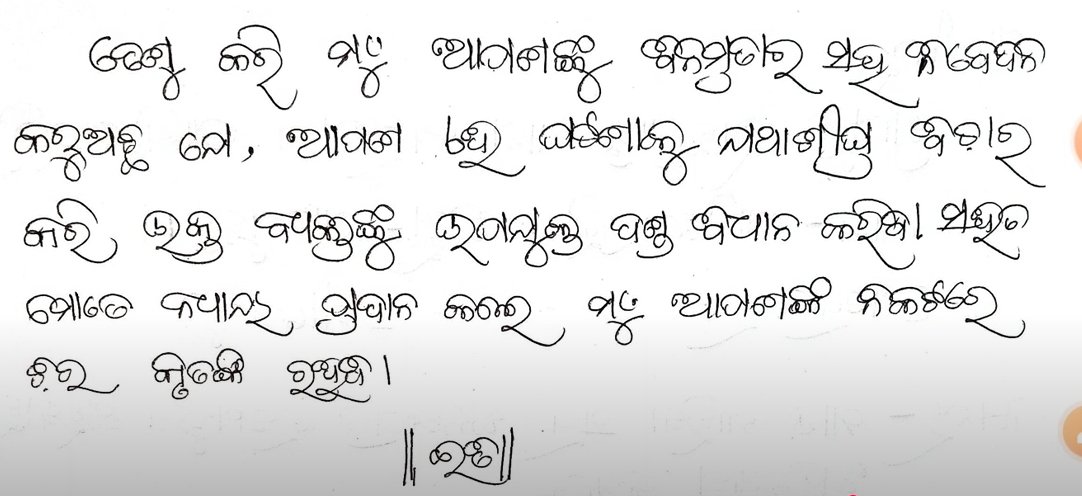 ତେଣୁ କରି ମୁଁ ଆପଣଙ୍କୁ ବିନମ୍ରତାର ସହ ନିବେଦନ
କରୁଅଛି ଯେ, ଆପଣ ଏହି ଘଟଣାକୁ ଯଥାଶୀଘ୍ର ବିଚାର
କରି ଉକ୍ତ ବ୍ୟକ୍ତିଙ୍କୁ ଉପଯୁକ୍ତ ଦଣ୍ଡ ବିଧାନ କରିବା। ସହିତ
ମୋତେ ନ୍ୟାୟ ପ୍ରଦାନ କଲେ ମୁଁ ଆପଣଙ୍କ ନିକଟରେ
ଚିର କୃତଜ୍ଞ ରହିବି।
॥ ଇତି॥